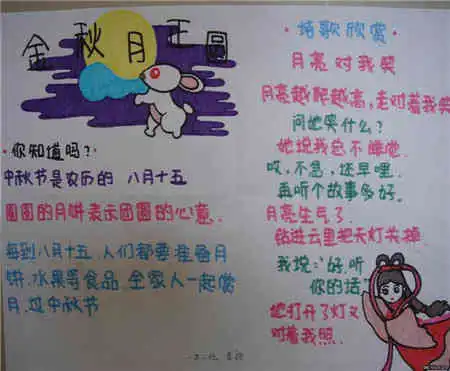 金秋月正圆
·你知道吗?
中秋节是农历的 八月十五
圆圆的月饼表示团圆的心意.
每到八月十五.人们都要准备月
饼.水果等食品.全家人一起赏
月.过中秋节
·诗歌欣赏·
月亮对我笑
月亮越爬越高,老对着我笑
问她笑什么?
她说我总不睡觉.
哎,不急,还早哩.
再听个故事多好.
月亮生气了.
钻进云里把天灯关掉.
我说:"好,听
你的话"
她打开了灯又
对着我照.